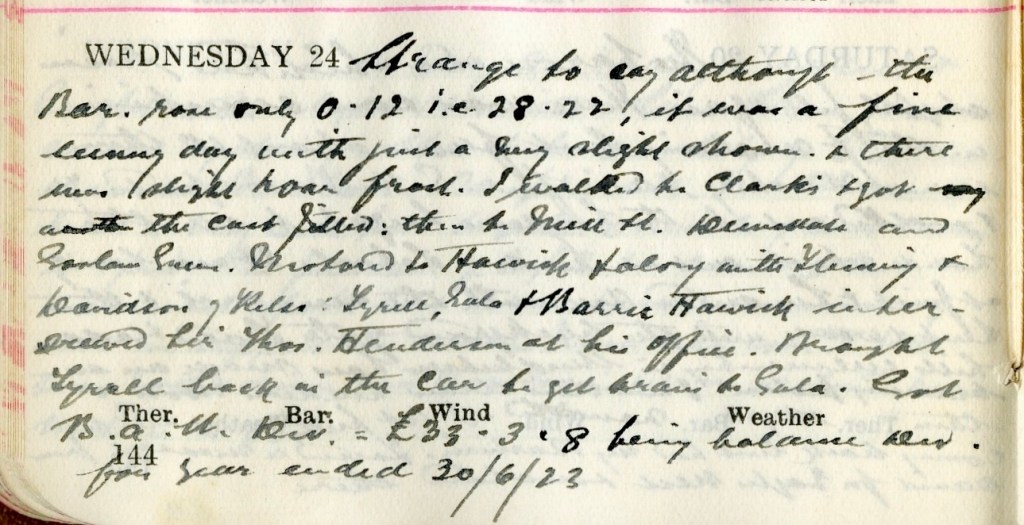 WEDNESDAY 24 Strange to say although the
Bar. rose only 0.12 i.e 28.22, it was a fine
sunny day with just a very slight shower. & there
was slight hoar frost. I walked to Clarks & got
the cart filled: then to Mill H. and
Motored to Hawick & along with Fleming &
Davidson of Kelso: Tyrell, Gala & Barrie Hawick inter-
viewed Sir Thos. Henderson at his office. Brought
Tyrell back in the car to get train to Gala. Got
Ther. Bar. Wind Weather
B.a. Div. = £33.3.8 being balance Div.
144
for year ended 30/6/23